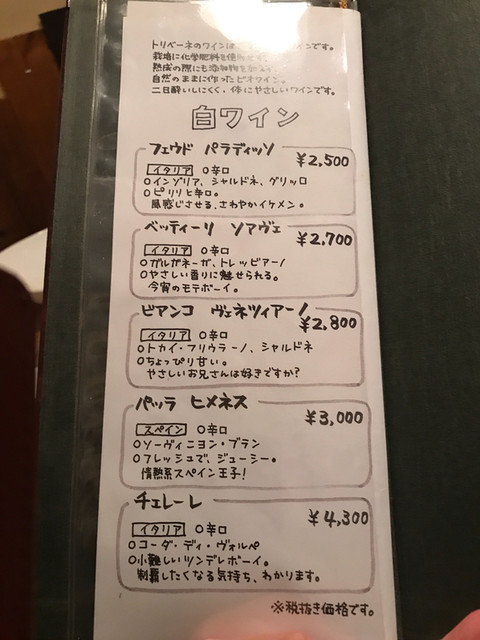 トリベーネのワインは インです。
栽培に化学肥料を使
熟成の際にも添加物を
自然のままに作ったビオワイン。
二日酔いしにくく、体にやさしいワインです。
白ワイン
フェウド パラディッソ
¥2,500
イタリア ○辛口
○インゾリア、シャルドネ、グリッロ
○ピリリと辛口。
風感じさせる、さわやかイケメン。
ベッティーリ ソアヴェ
¥2,700
イタリア ○辛口
○ガルガネーガ、トレッビアーノ
○やさしい香りに魅せられる。
今宵のモテボーイ。
ビアンコ ヴェネツィアーノ
¥2,800
イタリア ○辛口
○トカイ・フリウラーノ、シャルドネ
○ちょっぴり甘い。
やさしいお兄さんは好きですか?
パッラ ヒメネス
¥3,000
スペイン ○辛口
○ソーヴィニヨン・ブラン
○フレッシュで、ジューシー。
情熱系スペイン王子!
チェレーレ
¥4,300
イタリア ○辛口
○コーダ・ディ・ヴォルペ
○小難しいツンデレボーイ。
制覇したくなる気持ち、わかります。
※税抜き価格です。